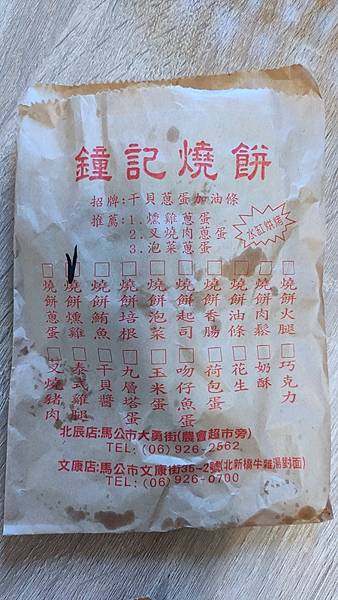 鐘記燒餅
招牌:干貝蔥蛋加油條
推薦:1.燻雞蔥蛋
2.叉燒肉蔥蛋
3.泡菜蔥蛋
水缸烘
燒餅蔥蛋
燒餅燻雞
燒餅鮪魚
燒餅培根
燒餅泡菜
燒餅起司
燒餅香腸
燒餅油條
燒餅肉鬆
燒餅火腿
叉燒豬肉
泰式雞腿
干貝醬
九層塔蛋
玉米蛋
吻仔魚蛋
荷包蛋
花生
奶酥
巧克力
北辰店:馬公市大勇街(農會超市旁)
TEL:(06)926-2562
文康店:馬公市文康街35-2號(北新橋牛雜湯對面)
TEL:(06)926-0700